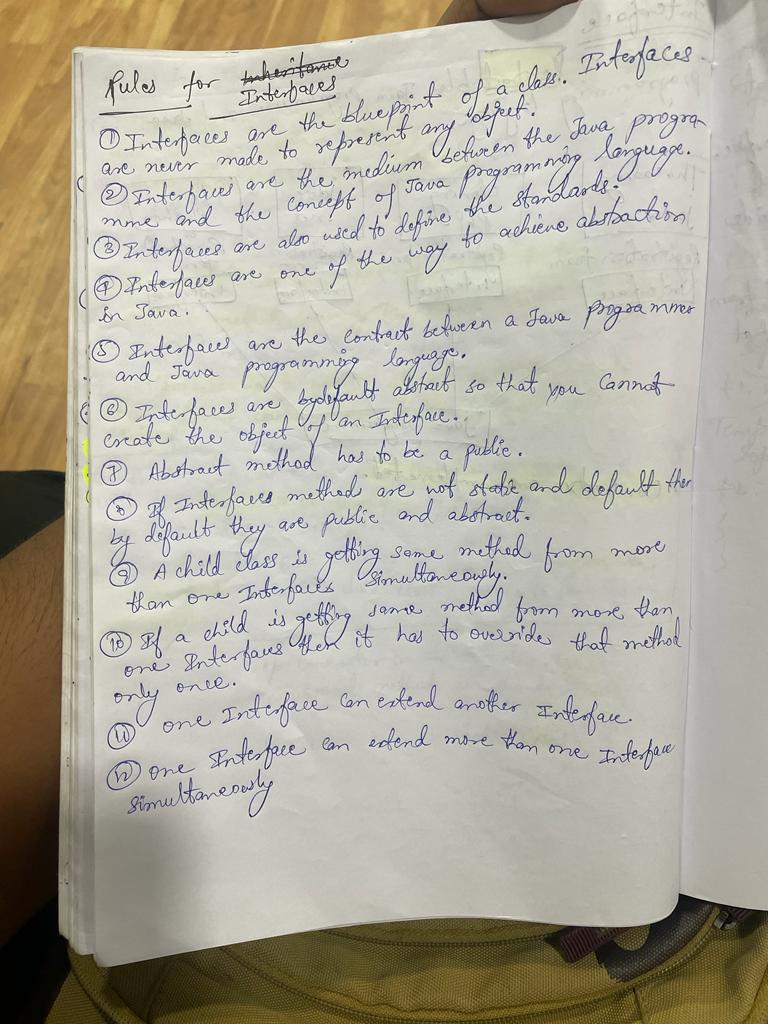 Rules for Inheritance
Interfaces
① Interfaces are the blueprint of a class. Interfaces
are never made to represent any object.
② Interfaces are the medium between the Java progra-
mme and the concept of Java programming language.
③ Interfaces are also used to define the standards.
④ Interfaces are one of the way to achieve abstraction
in Java.
⑤ Interfaces are the contract between a Java programmer
and Java programming language.
⑥ Interfaces are bydefault abstract so that you Cannot
create the object of an Interface.
⑦ Abstract method has to be a public.
⑧ If Interfaces methods are not static and default then
by default they are public and abstract.
⑨ A child class is getting same method from more
than one Interfaces simultaneously.
⑩ If a child is getting same method from more than
one Interfaces then it has to override that method
only once.
⑪ one Interface can extend another Interface.
⑫ one Interface can extend more than one Interface
simultaneously